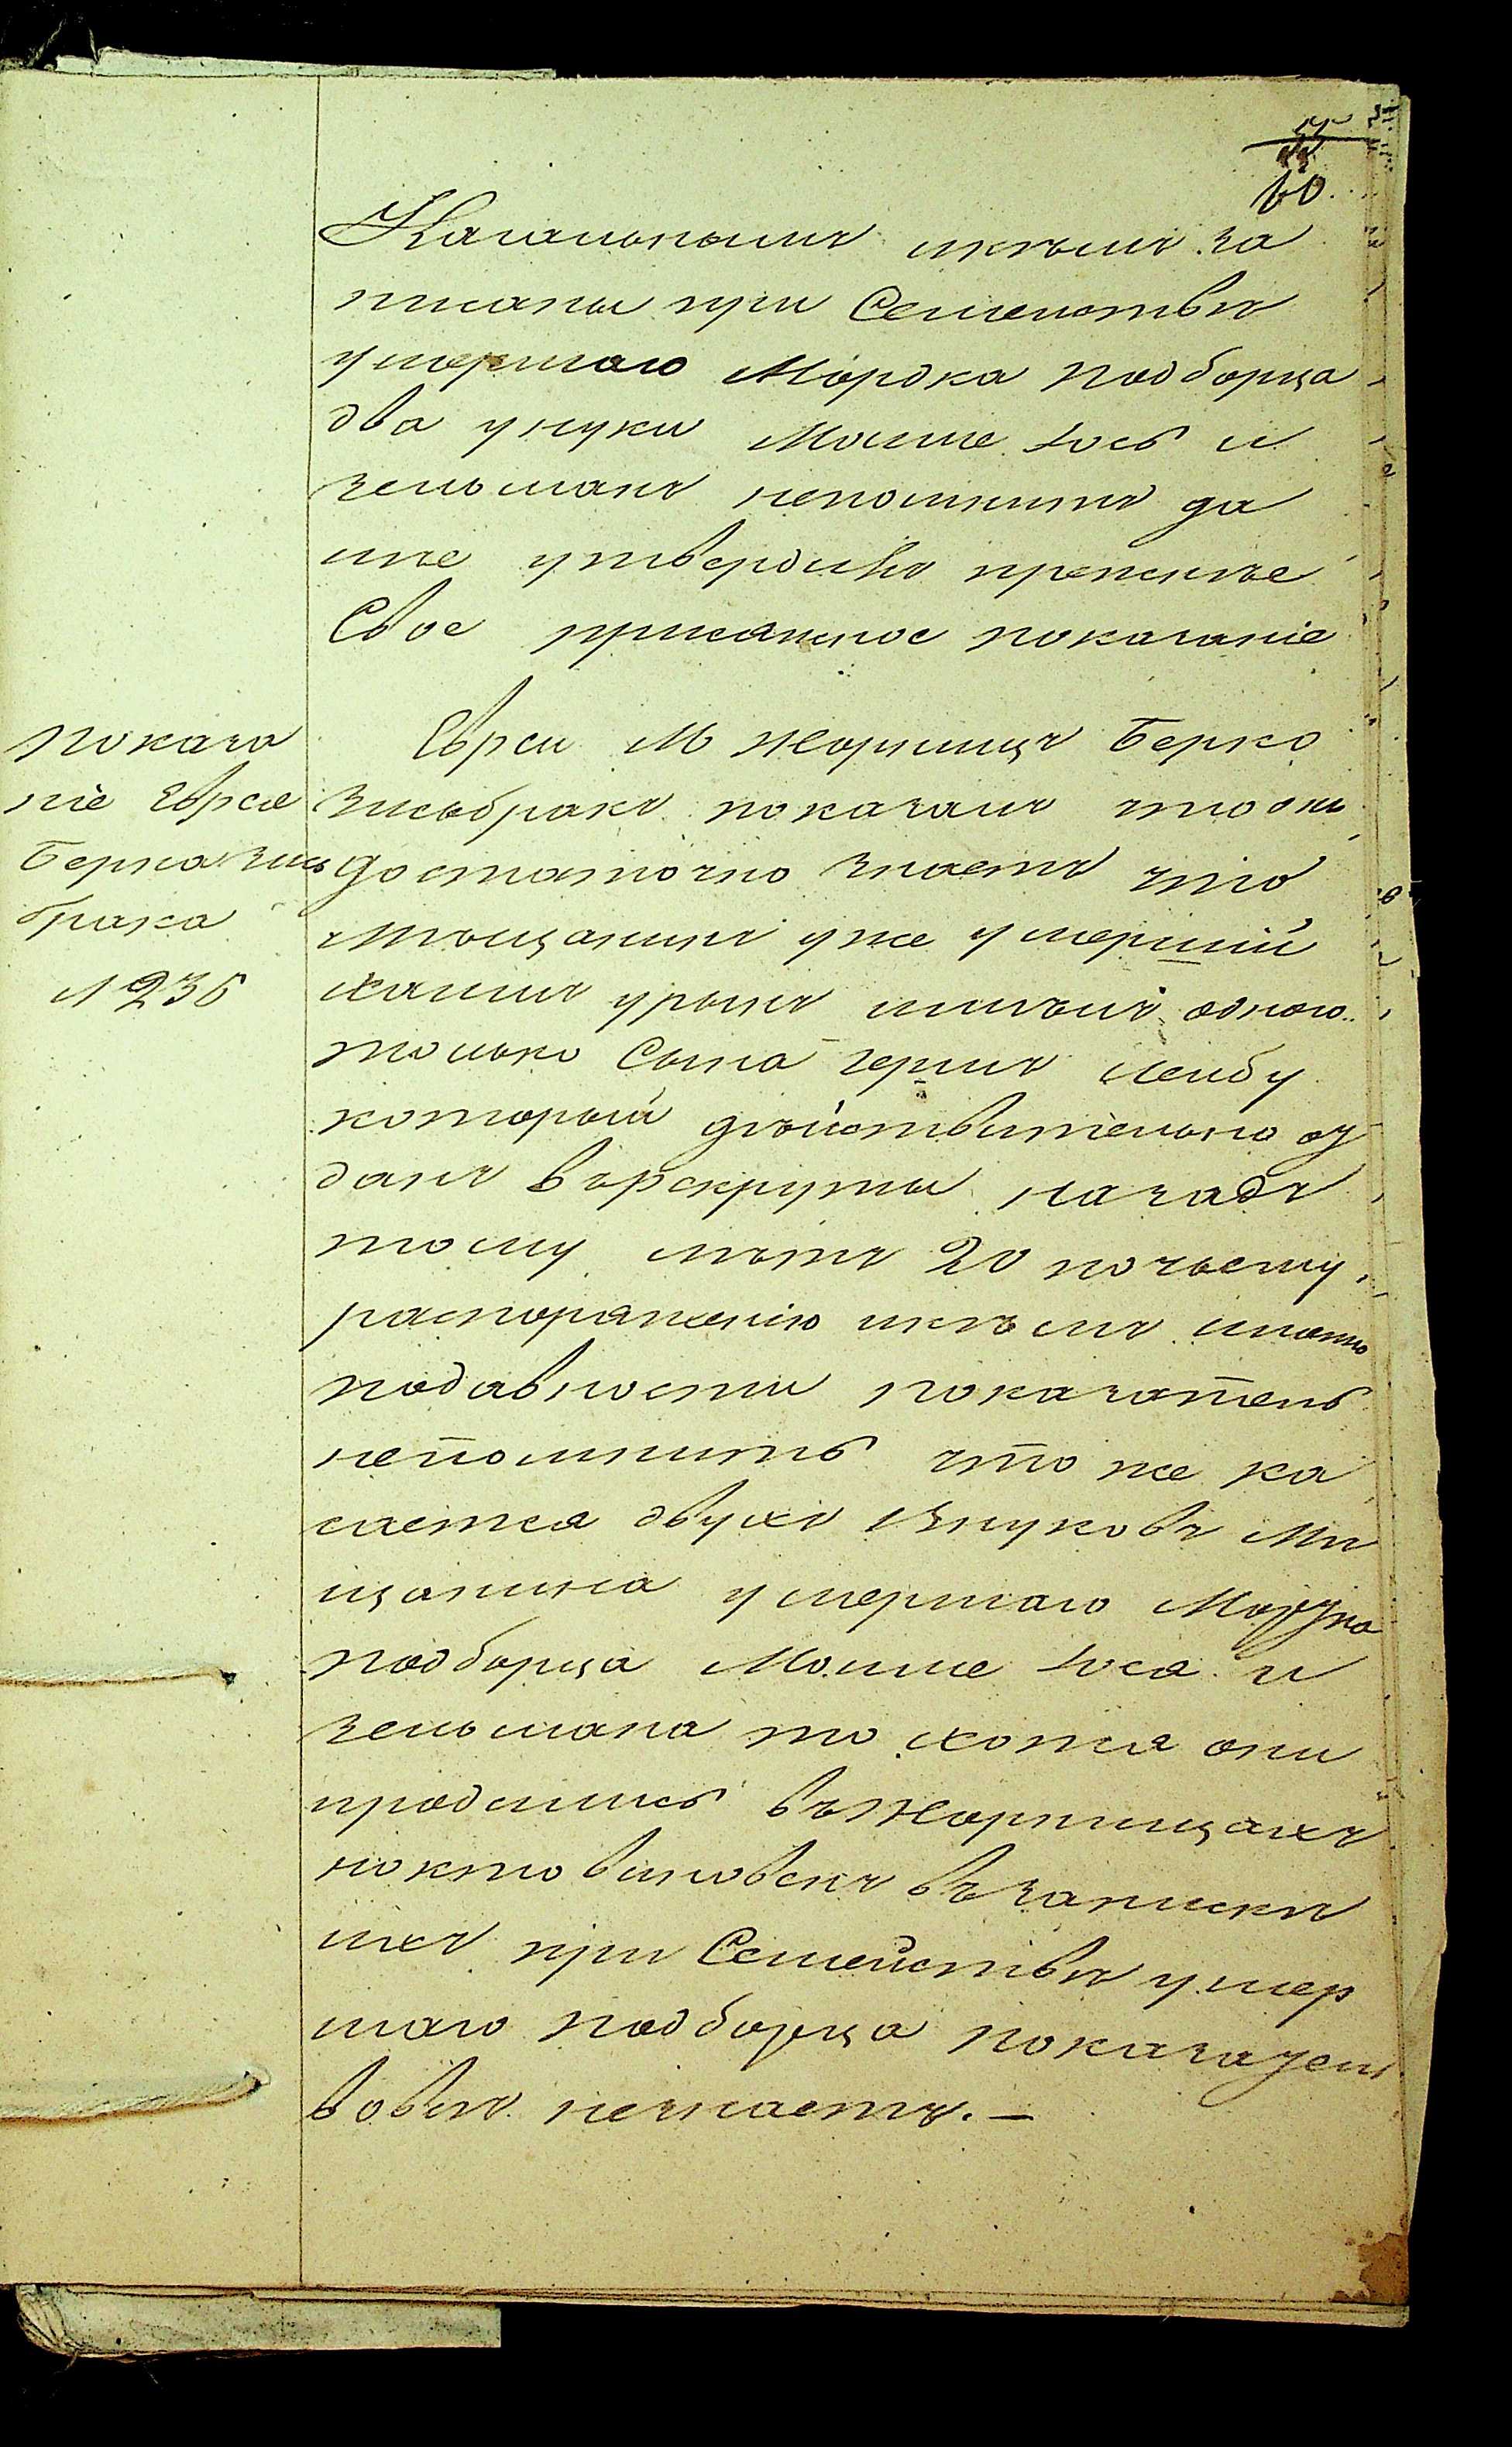 60.
Кагальнымъ имѣемъ за
писаны при Семействѣ
умершаго Мордка Подборца
два унуки Мошие Іось и
зельманъ непомнитъ да
лѣе утвердилъ прежнее
Свое присяжное показаніе
показа
ніе Еврея
Берка Зись
брака
л 236
Еврей М Жорнищъ Берко
Зисьбракъ показалъ что онъ
достаточно знаетъ что
мѣщанинъ уже умершій
Хаимъ урынъ имѣлъ одного
только Сына гершъ лейбу
который дѣйствительно от
данъ въ рекруты назадъ
тому лѣтъ 20 по чьему
распоряженію имѣемъ именно
подавности показатель
непомнитъ что же ка
сается двухъ внуковъ Мѣ
щанина умершаго Мордка
подборца Мошие Іося и
зельмана то хотя они
продились въ Жорнищахъ
но кто виновенъ въ запискѣ
ихъ при Семействѣ умер
шаго подборца показатель
вовсе незнаетъ. —